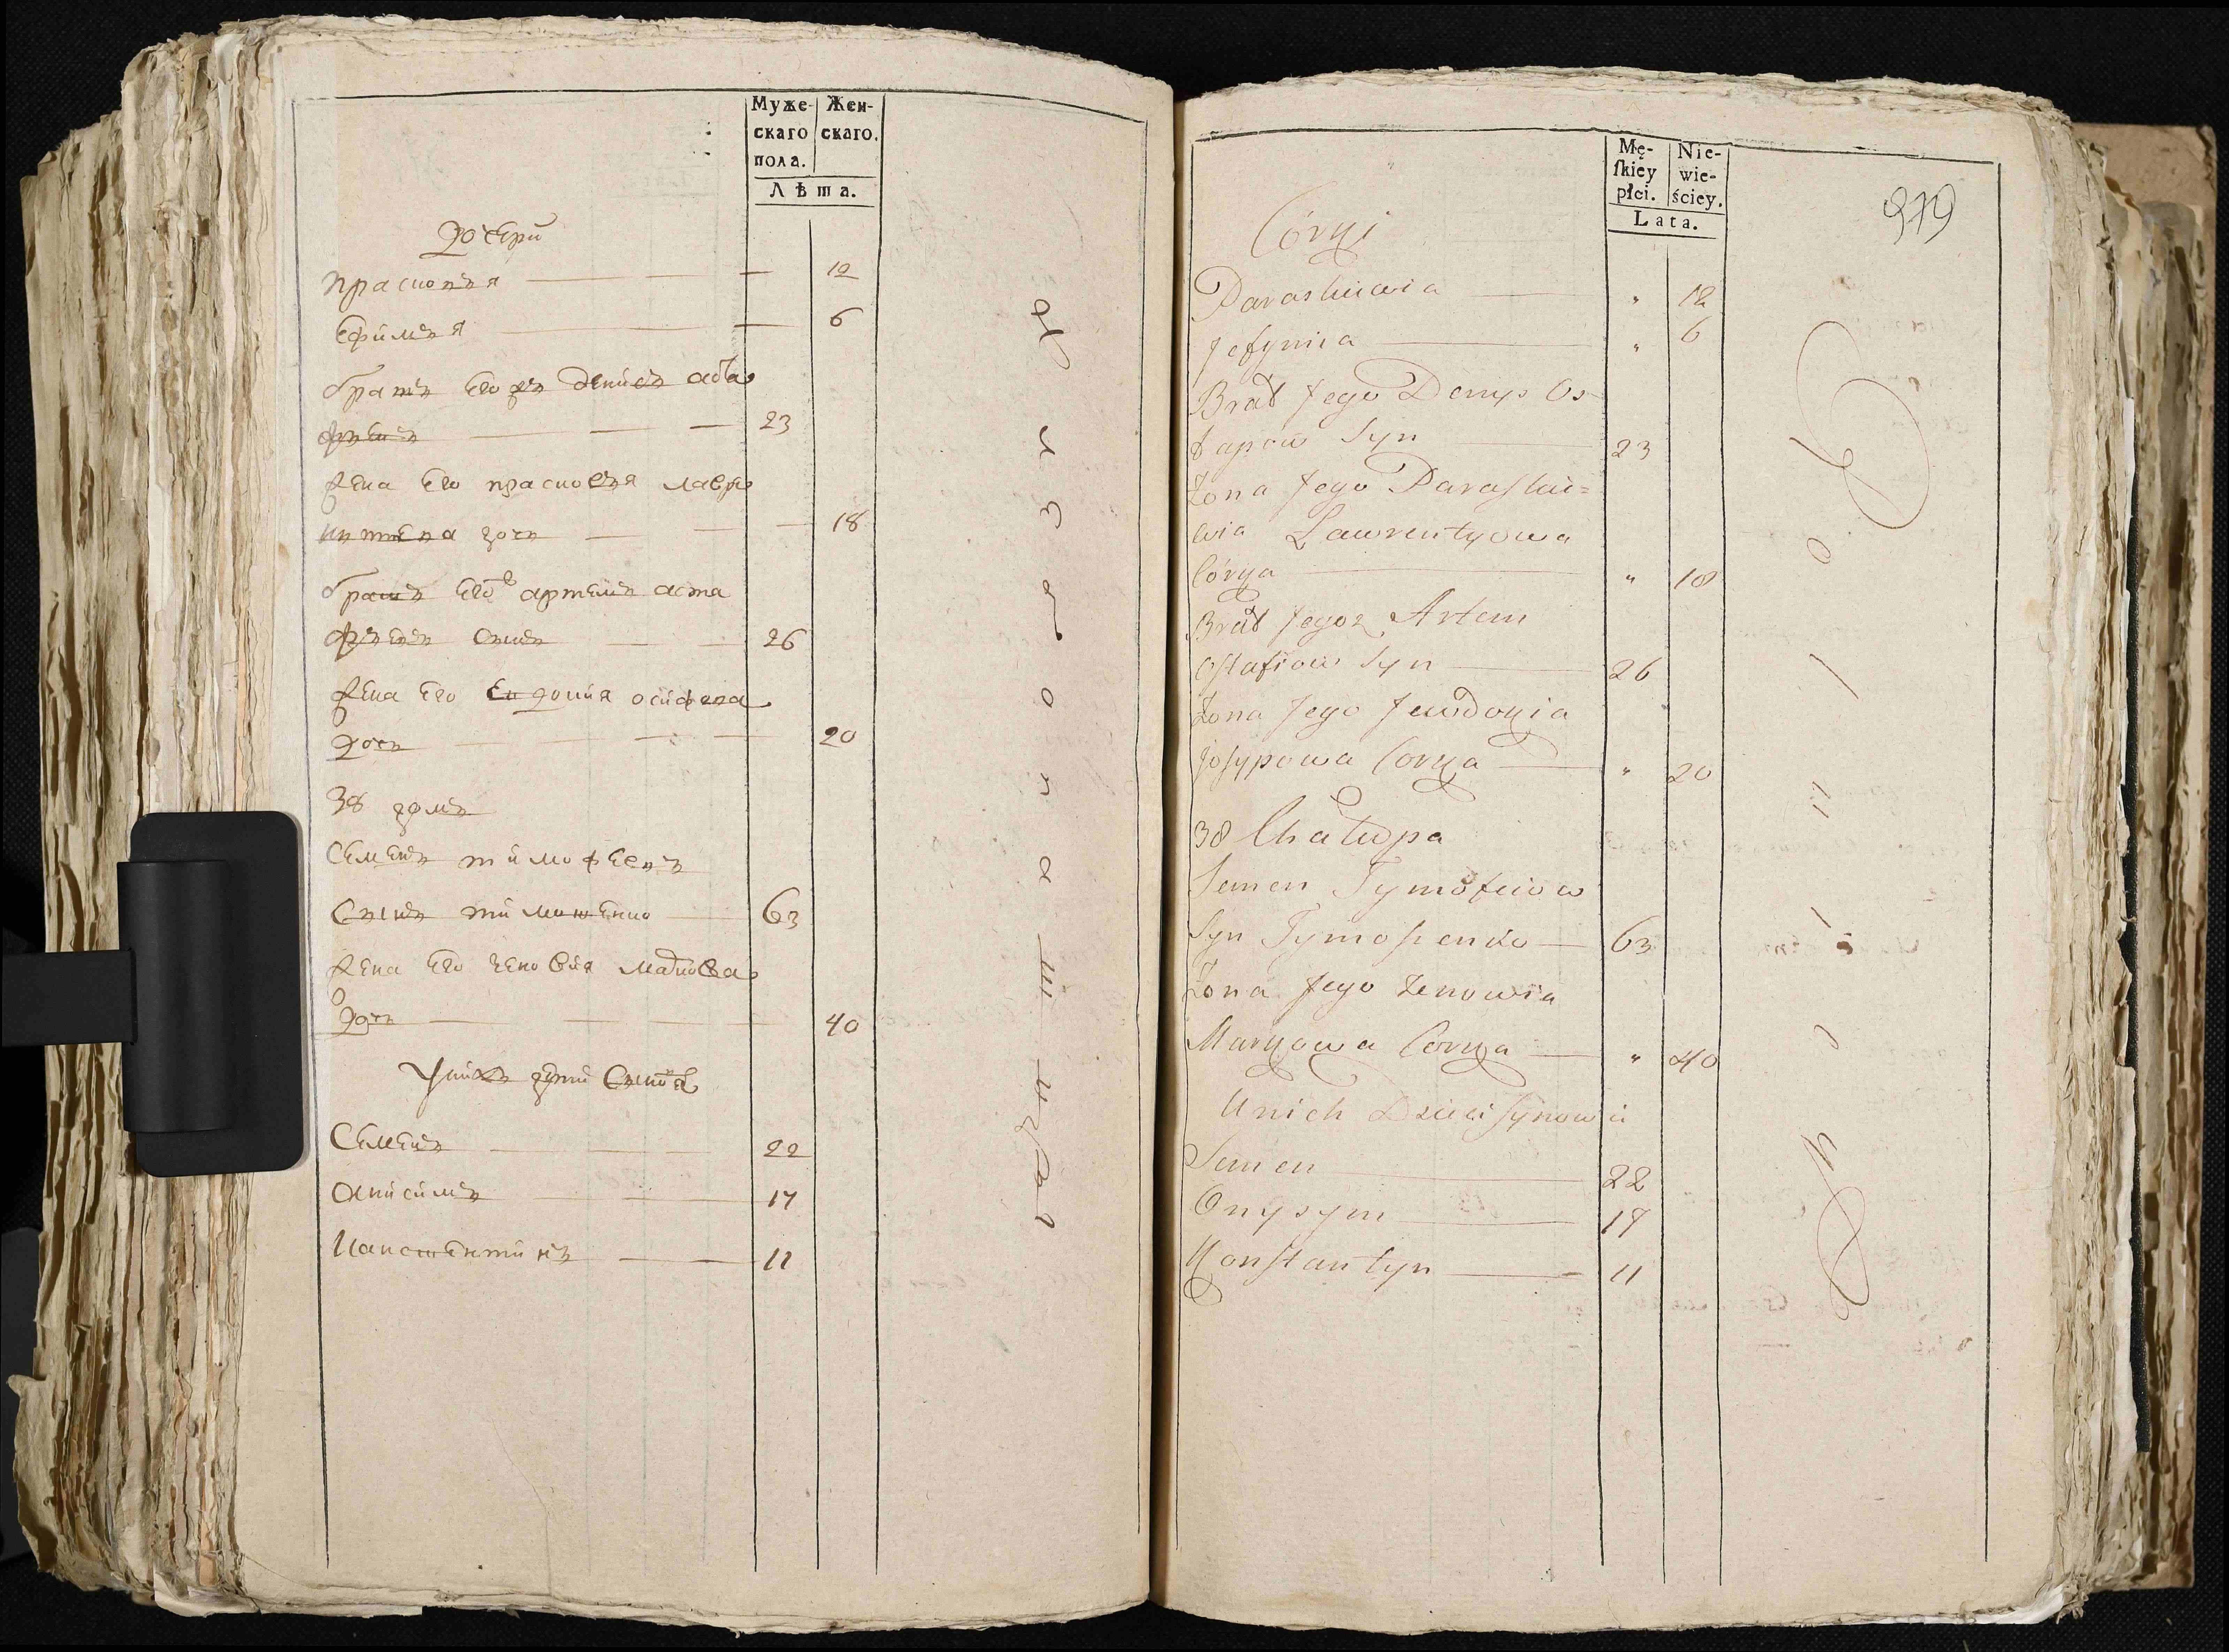 Муже-
скаго
пола.
Жен-
скаго.
Лѣта.
Дочери
прасковья 12
Ефимья 6
братъ Его денисъ аста
фьевъ 23
жена Его прасковья лавре
нтьева дочь 18
братъ Его 2 артемъ аста
фьевъ сынъ 26
жена Его Евдокия осипова
дочь 20
38 домъ
Семенъ тимофеевъ
Сынъ тимошенко 63
жена Его зеновия маркова
дочь 40
У нихъ дети Сыновя
Семенъ 22
Онисимъ 17
Констентинъ 11
Mę-
ſkiey
płci.
Nie-
wie-
ściey.
Lata.
379
Córki
Paraskiewia " 12
Jefymia " 6
Brat Jego Denys Os-
tapow Syn 23
Żona Jego Paraskie=
wia Lawrentyowa
Córka " 18
Brat Jego 2 Artem
Ostafiow Syn 26
Żona Jego Jewdokia
Josypowa Corka " 20
38 Chałupa
Semen Tymofeiow
Syn Tymoszenko 63
Żona Jego Zenowia
Markowa Corka " 40
U nich Dzieci Synowie
Semen 22
Onysym 17
Konstantyn 11